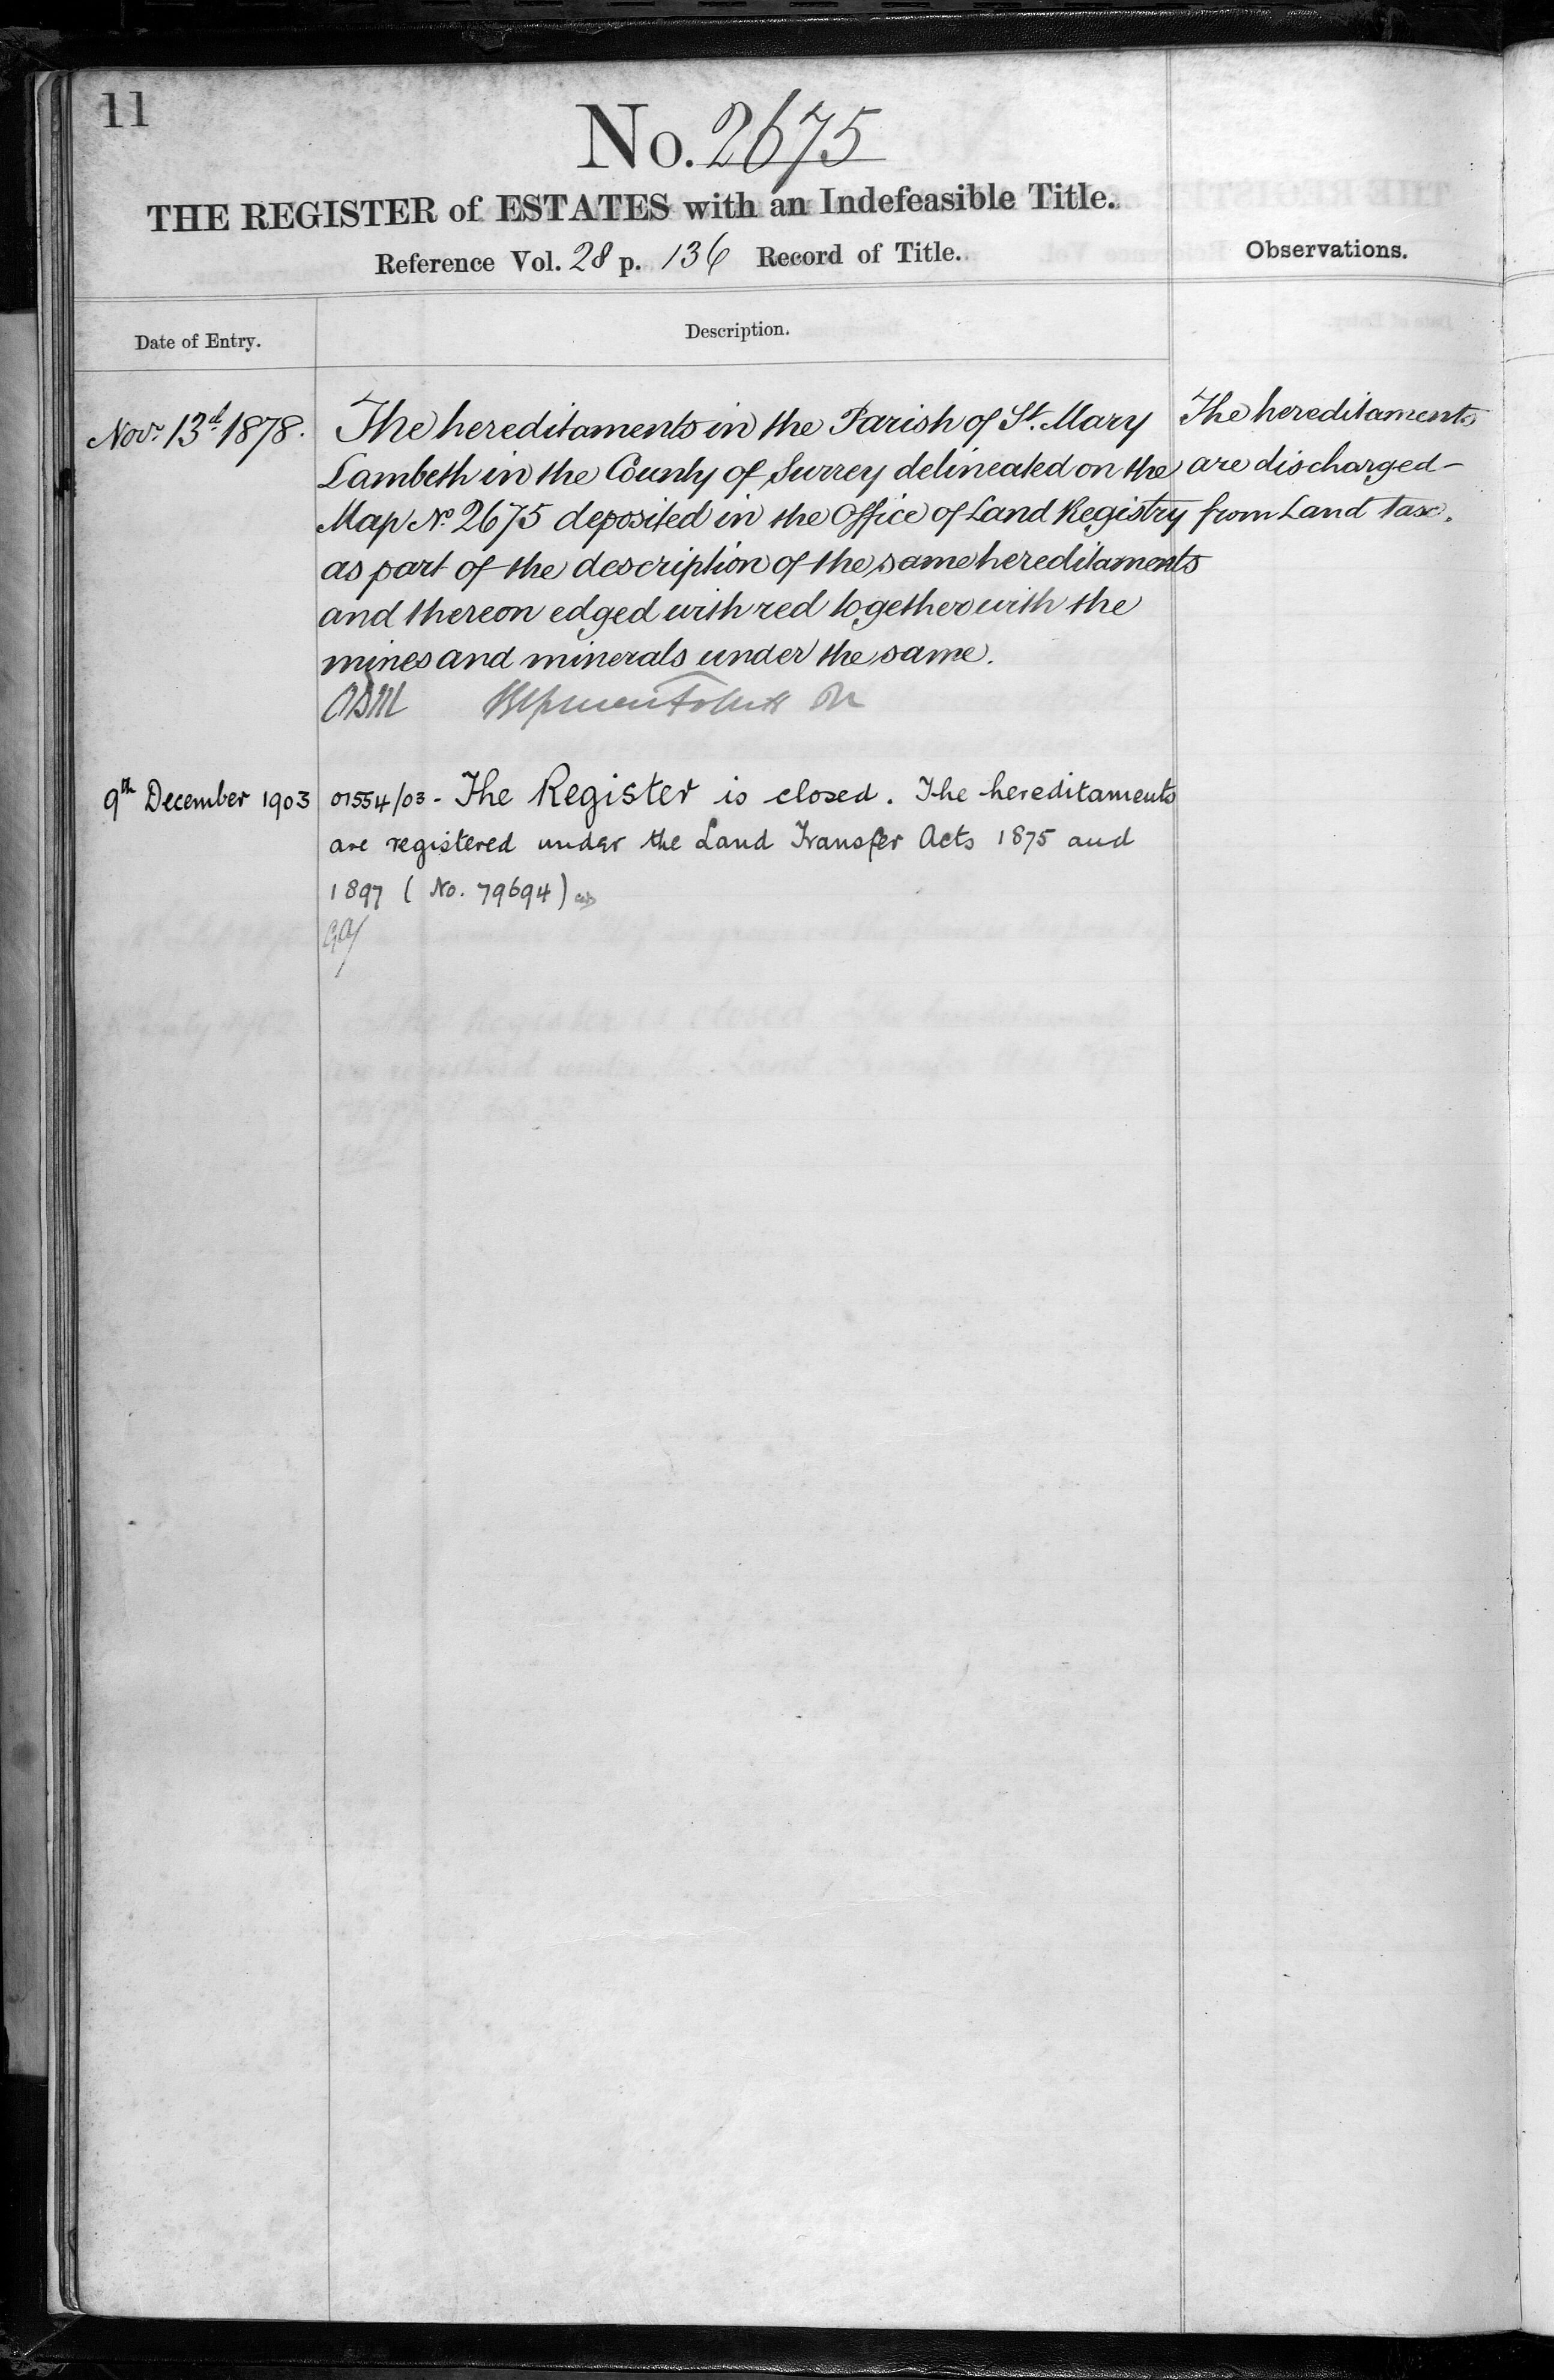 11
No. 2675
THE REGISTER of ESTATES with an Indefeasible Title.
Reference Vol. 28 p. 136 Record of Title.
Observations.
Date of Entry.
Description.
Novr. 13d. 1878.
The hereditaments in the Parish of St. Mary
Lambeth in the County of Surrey delineated on the
Map No. 2675 deposited in the Office of Land Registry
as part of the description of the same hereditaments
and thereon edged with red together with the
mines and minerals under the same.
The hereditaments
are discharged
from Land tax.
9th December 1903
01554/03 - The Register is closed. The hereditaments
are registered under the Land Transfer Acts 1875 and
1897 (No. 79694)